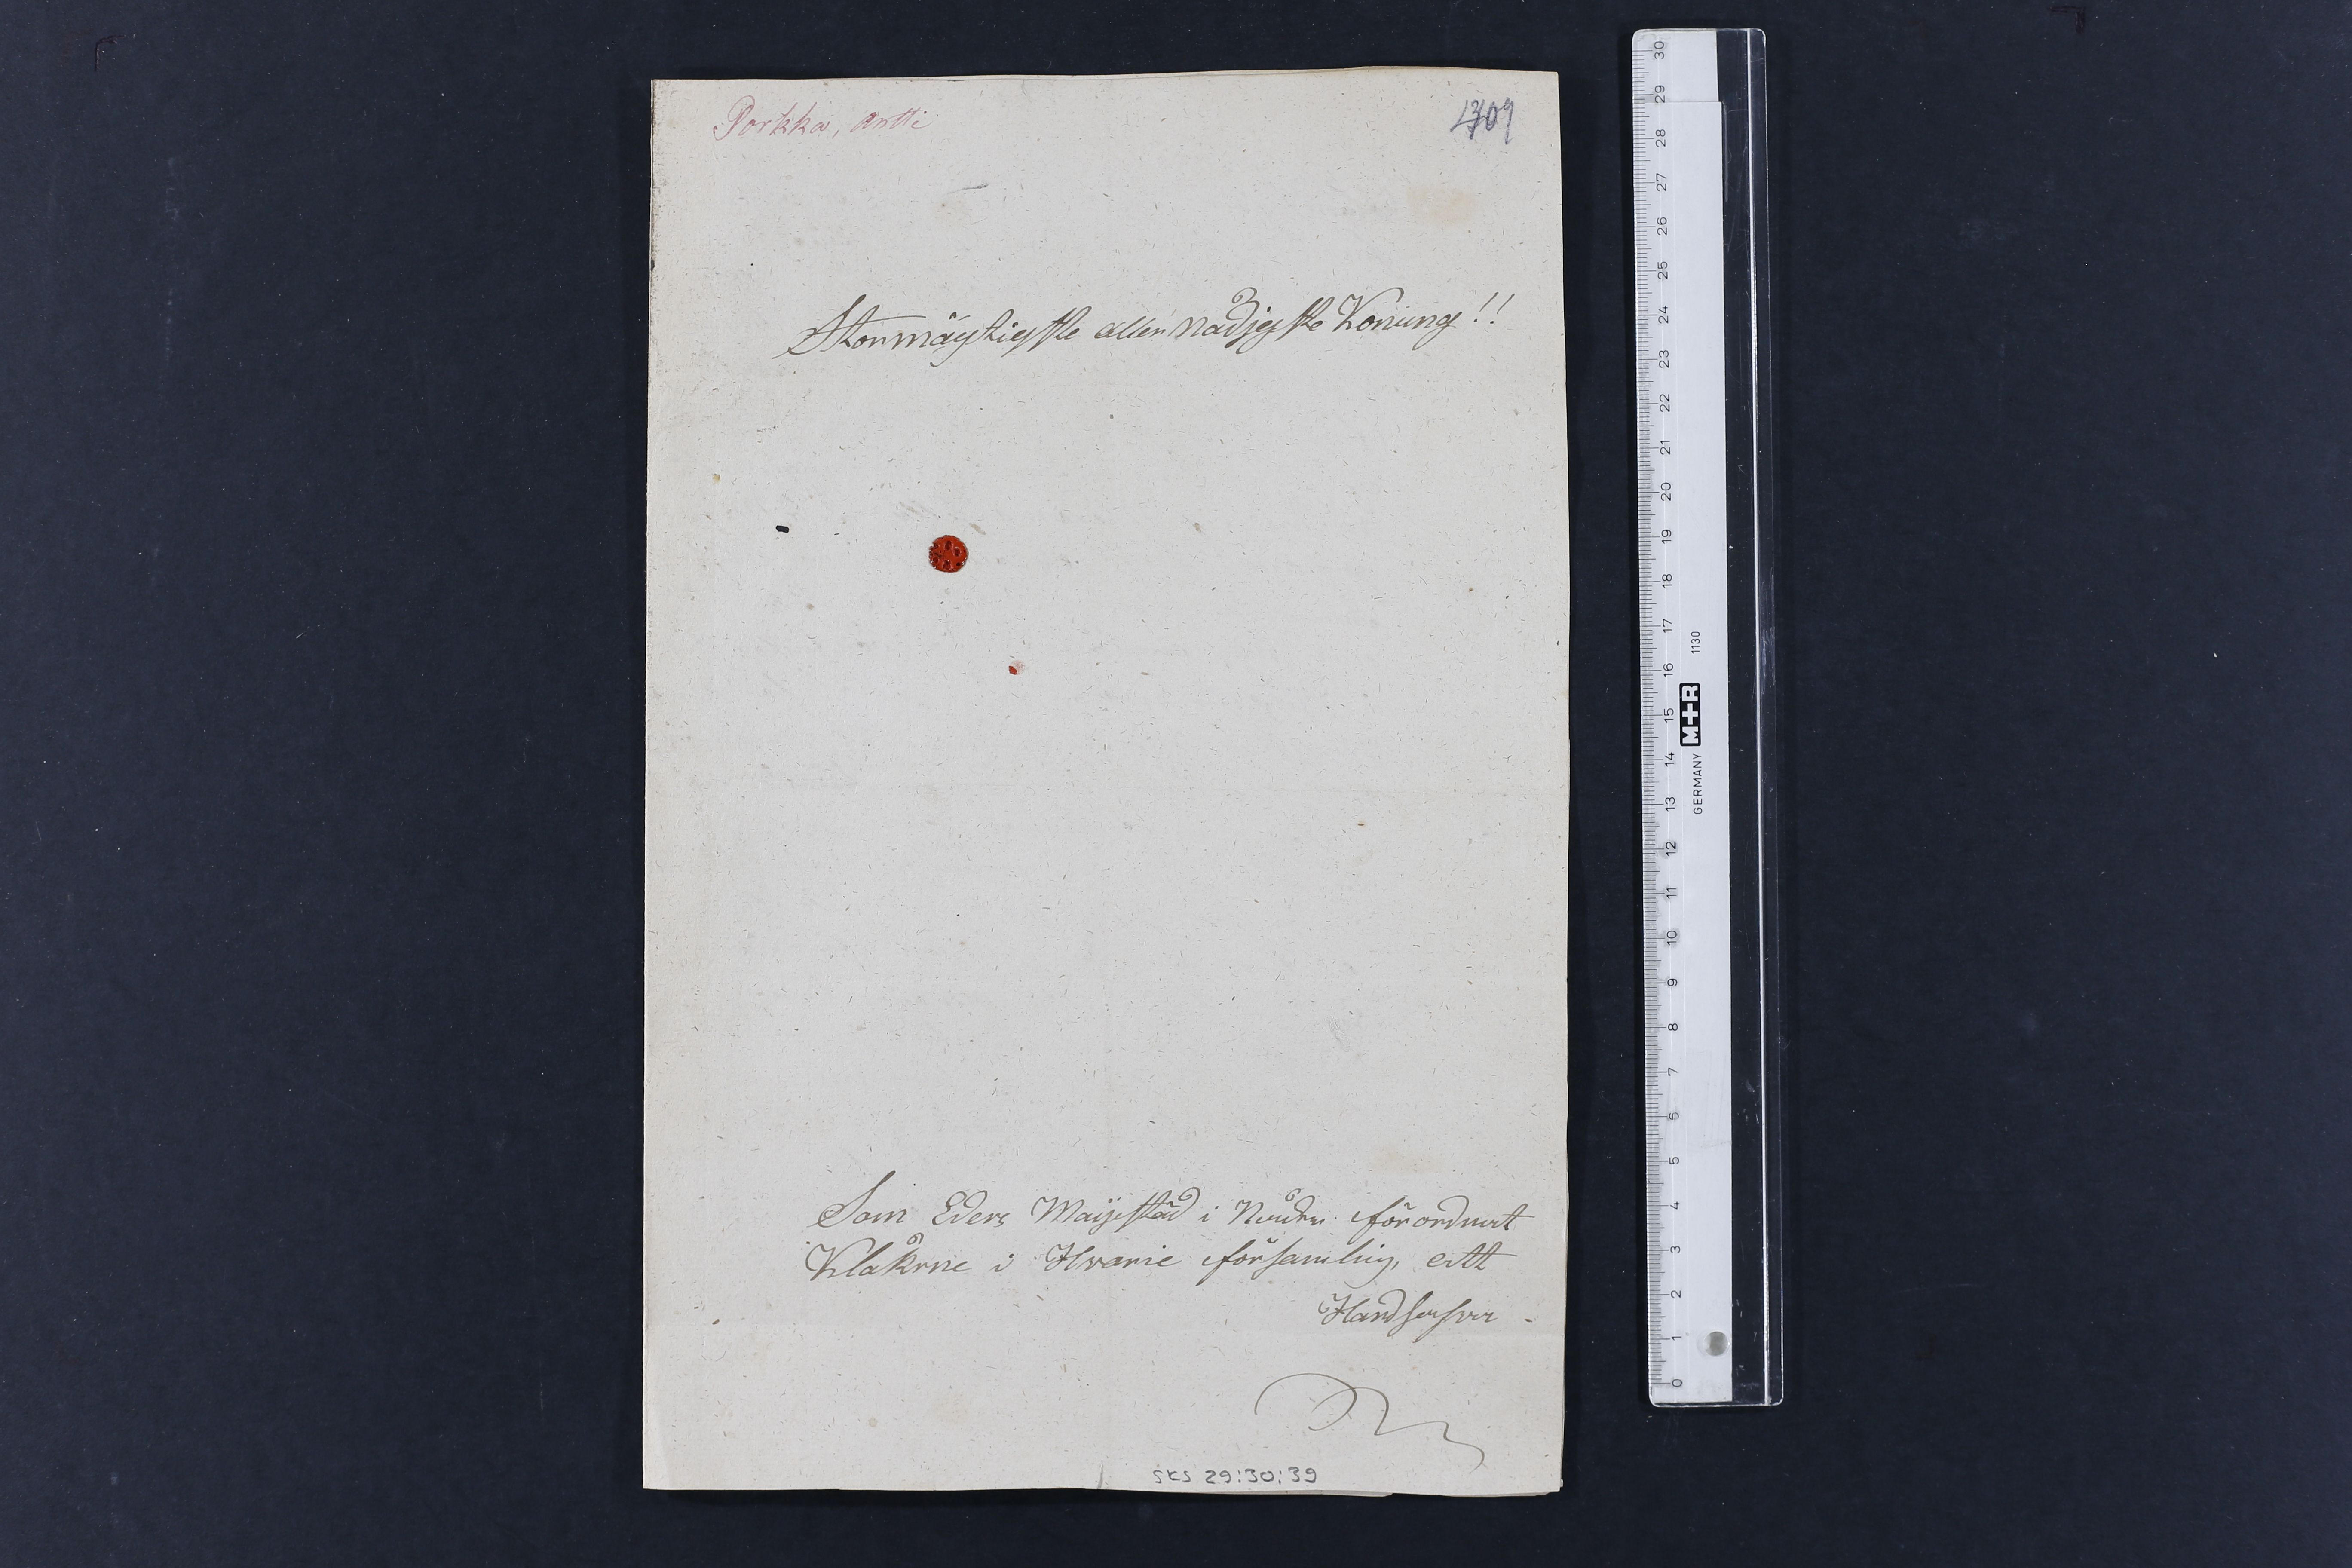 Porkka, Antti
409
Stormägtigste allernådjgste Konung!!
Som Eders Maijestäd i Nåder förordnat
Klåkrne i Hvarie församling, att
Hand
SKS 29:30:39
30 29 28 27 26 25 24 23 22 21 20 19 18 17 16 15 14 13 12 11 10 9 8 7 6 5 4 3 2 1 0
GERMANY M+R 1130